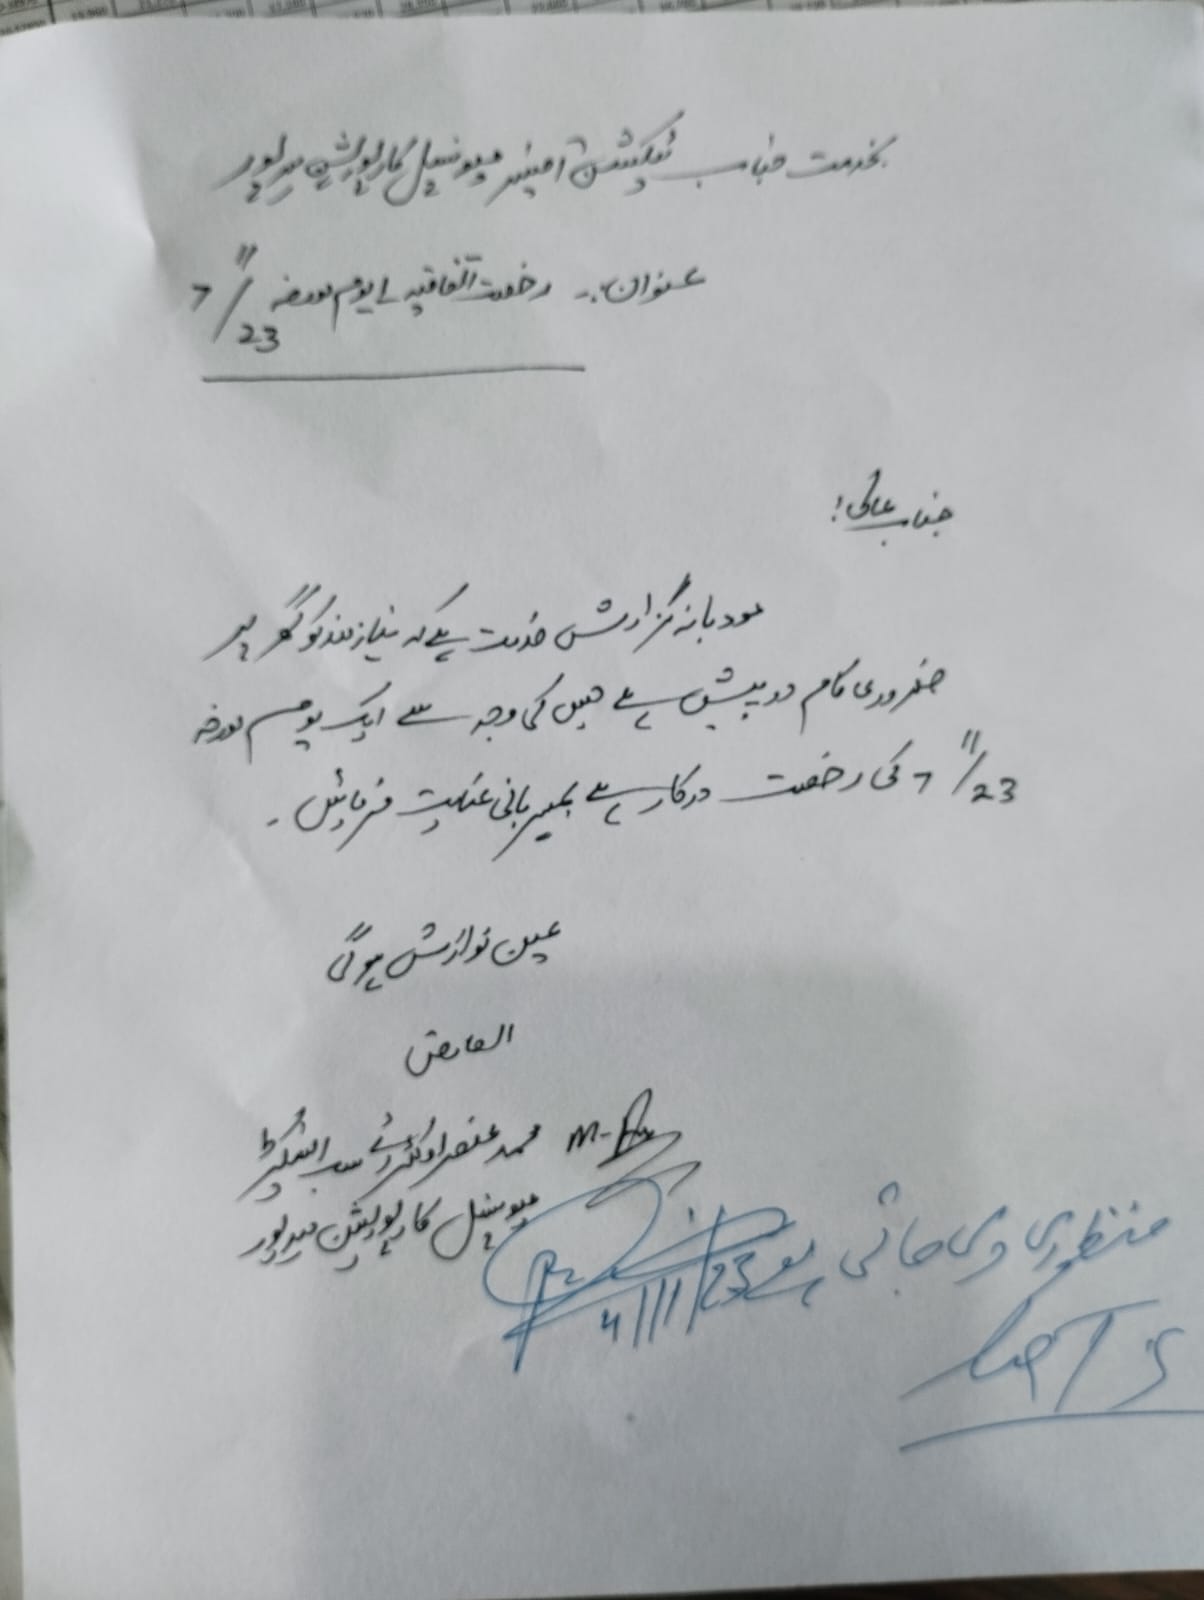 بخدمت جناب ٹیکسیشن آفیسر میونسپل کارپوریشن میرپور
عنوان:۔ رخصت اتفاقیہ 1 یوم مورخہ 7/11/23
جناب عالی!
مودبانہ گزارش خدمت ہے کہ نیازمند کو گھر پر
ضروری کام درپیش ہے جس کی وجہ سے ایک یوم مورخہ
7/11/23 کی رخصت درکار ہے بمہربانی عنایت فرمائیں۔
عین نوازش ہوگی
العارض
محمد عنصر اوکٹرائے سب انسپکٹر
میونسپل کارپوریشن میرپور
منظوری دی جاتی ہے
4/11/23